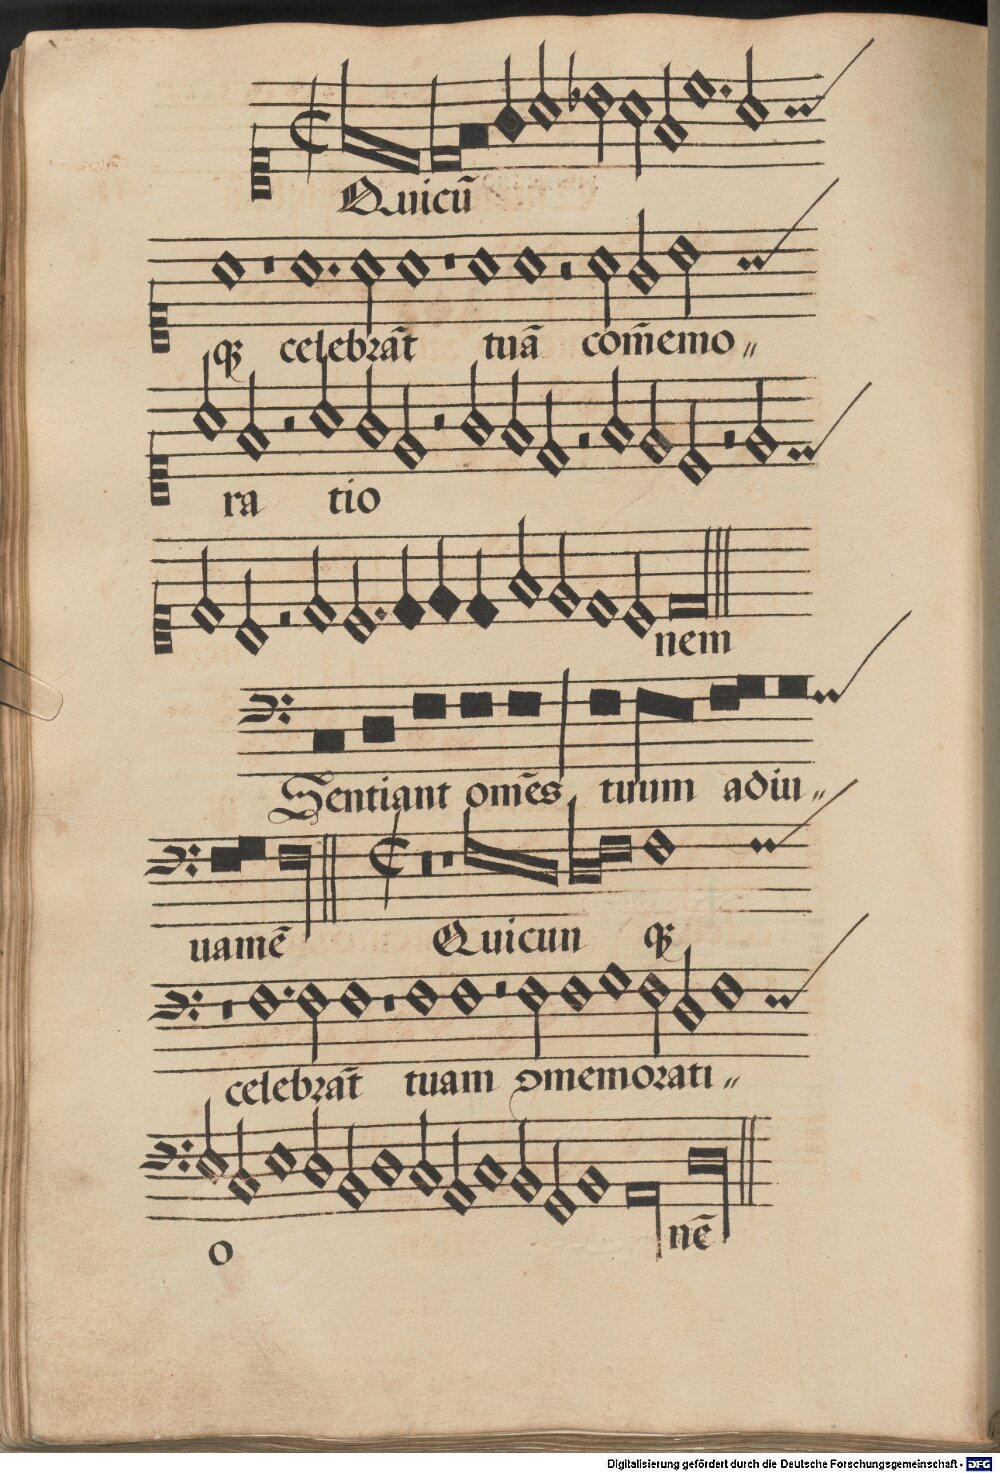 Quicū
qȝ celebrāt tuā com̄emo〃
ra tio
nem
Sentiant om̄es tuum adiu〃
uamē Quicun qȝ
celebrāt tuam ꝯmemorati〃
o nē
Digitalisierung gefördert durch die Deutsche Forschungsgemeinschaft - DFG